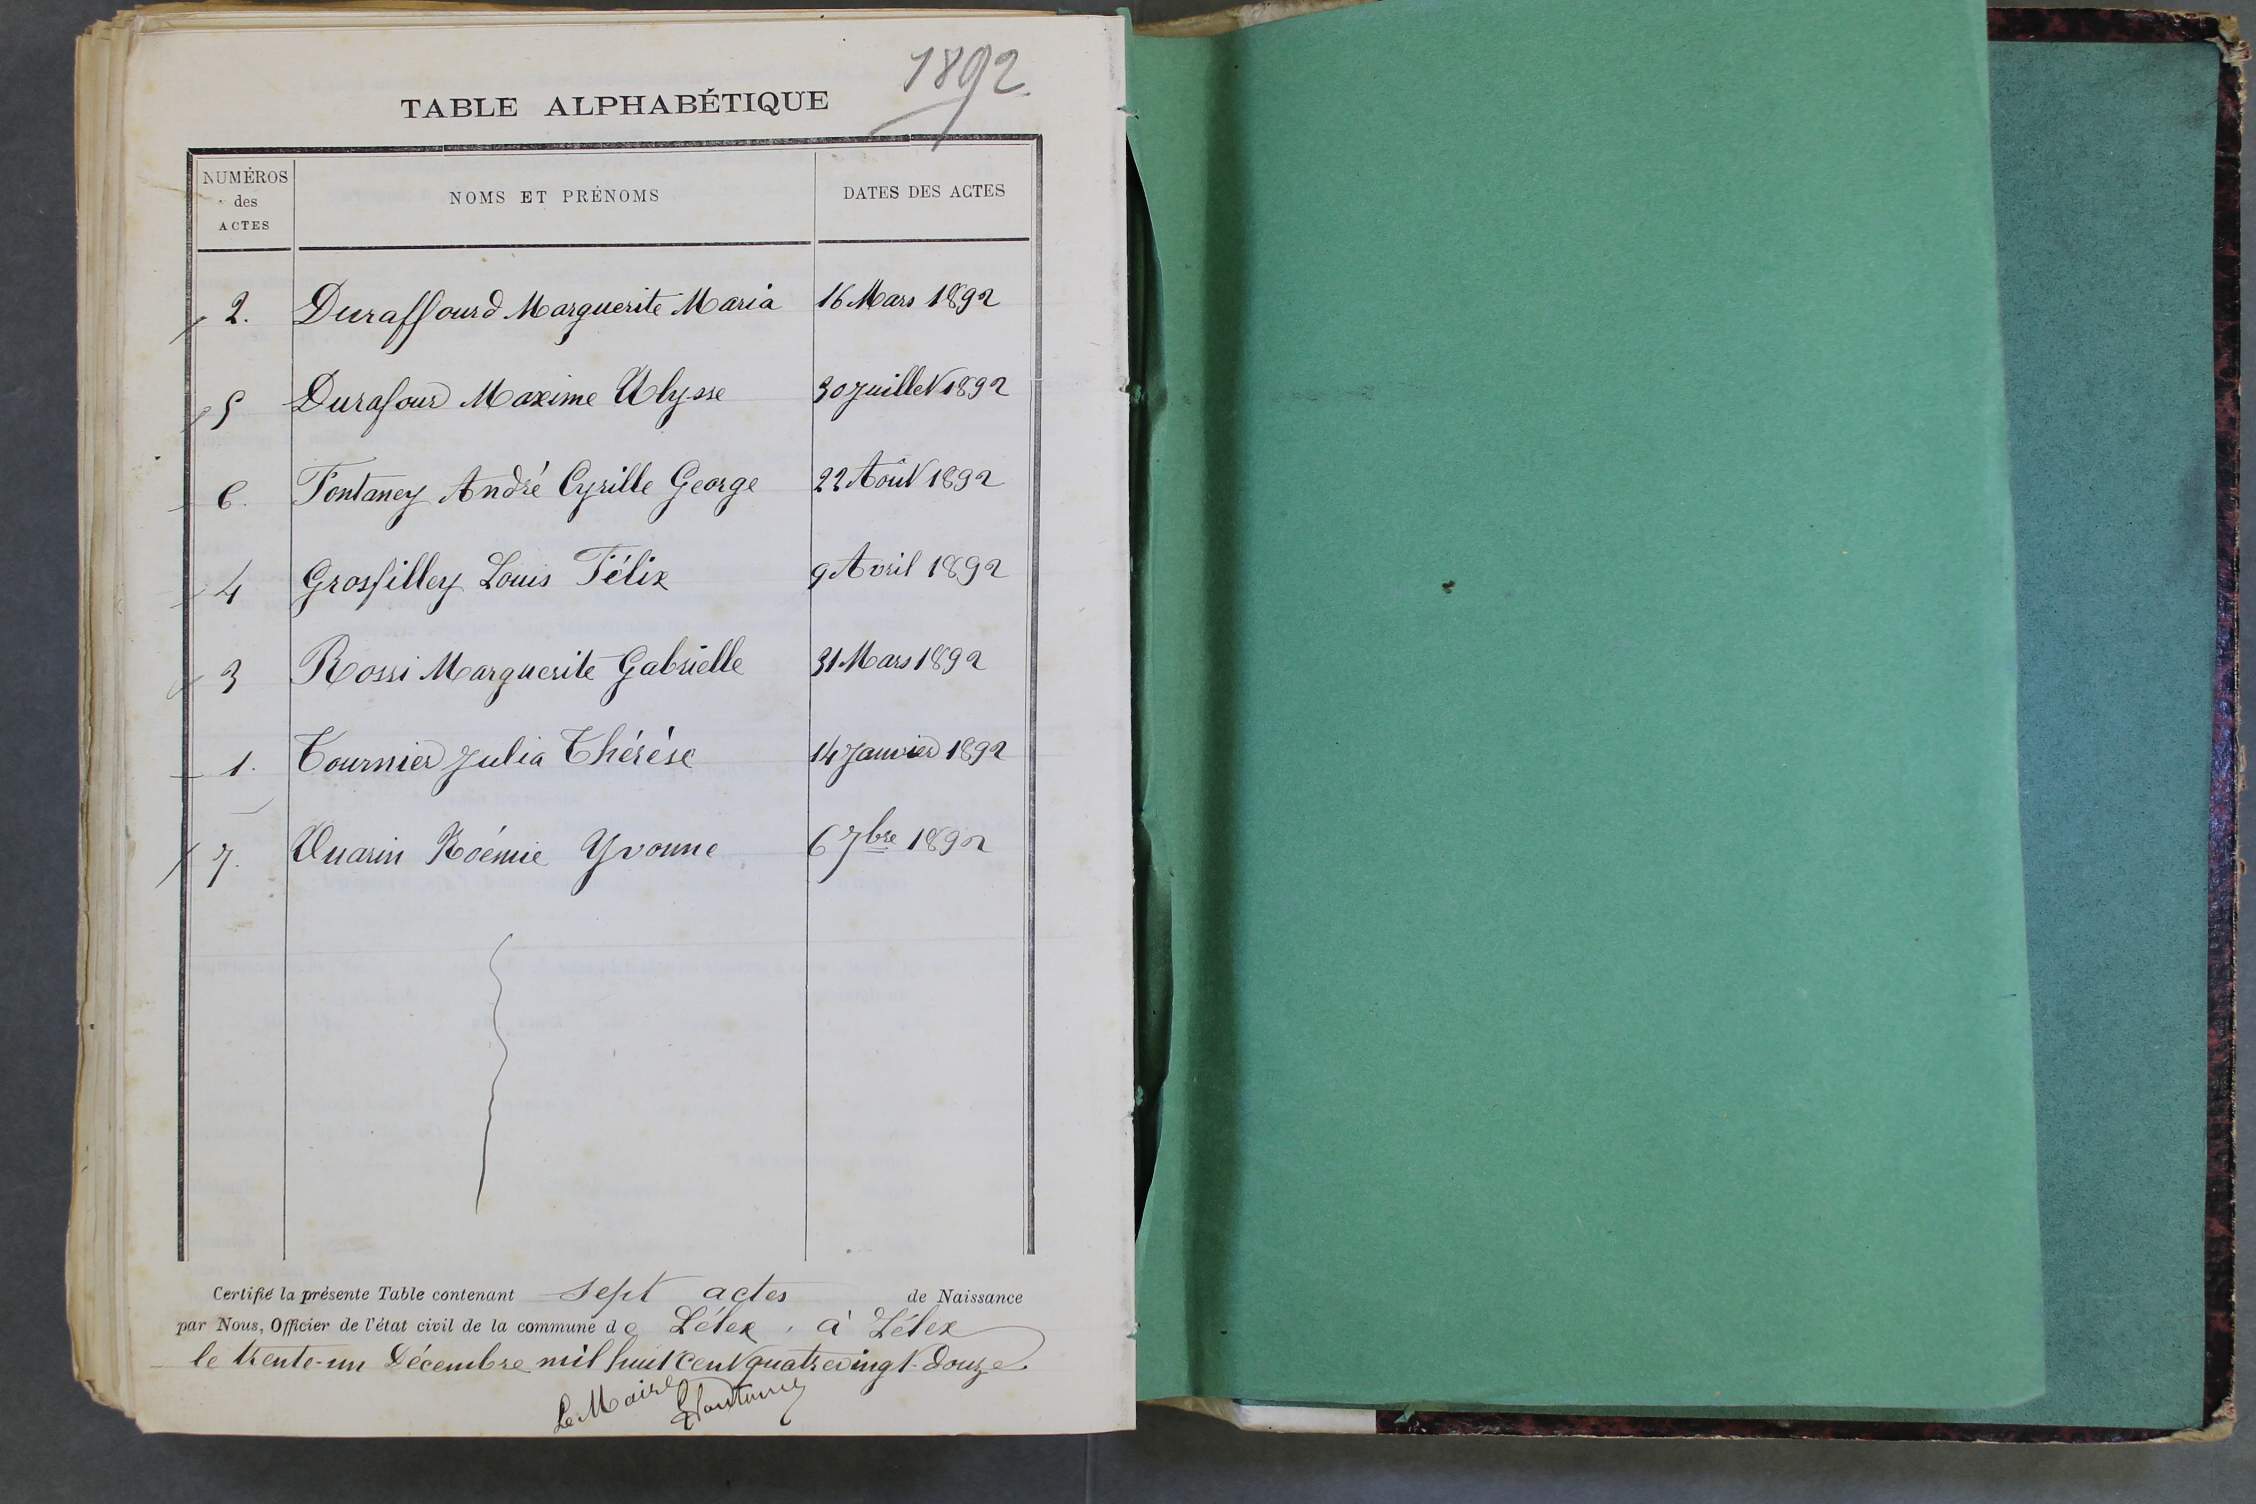 1892
TABLE ALPHABÉTIQUE
NUMÉROS
des
ACTES
NOMS ET PRÉNOMS
DATES DES ACTES
2. Duraffourd Marguerite Maria 16 Mars 1892
5 Durafour Maxime Ulysse 30 Juillet 1892
6. Fontaney André Cyrille George 22 Août 1892
4 Grosfilley Louis Félix 9 Avril 1892
3 Rossi Marguerite Gabrielle 31 Mars 1892
1. Tournier Julia Thérèse 14 Janvier 1892
7. Vuarin Noémie Yvonne 6 7bre 1892
Certifié la présente Table contenant sept actes de Naissance
par Nous, Officier de l'état civil de la commune de Lélex, à Lélex
le trente-un Décembre mil huit cent quatre vingt-douze
Le Maire
Fontaney